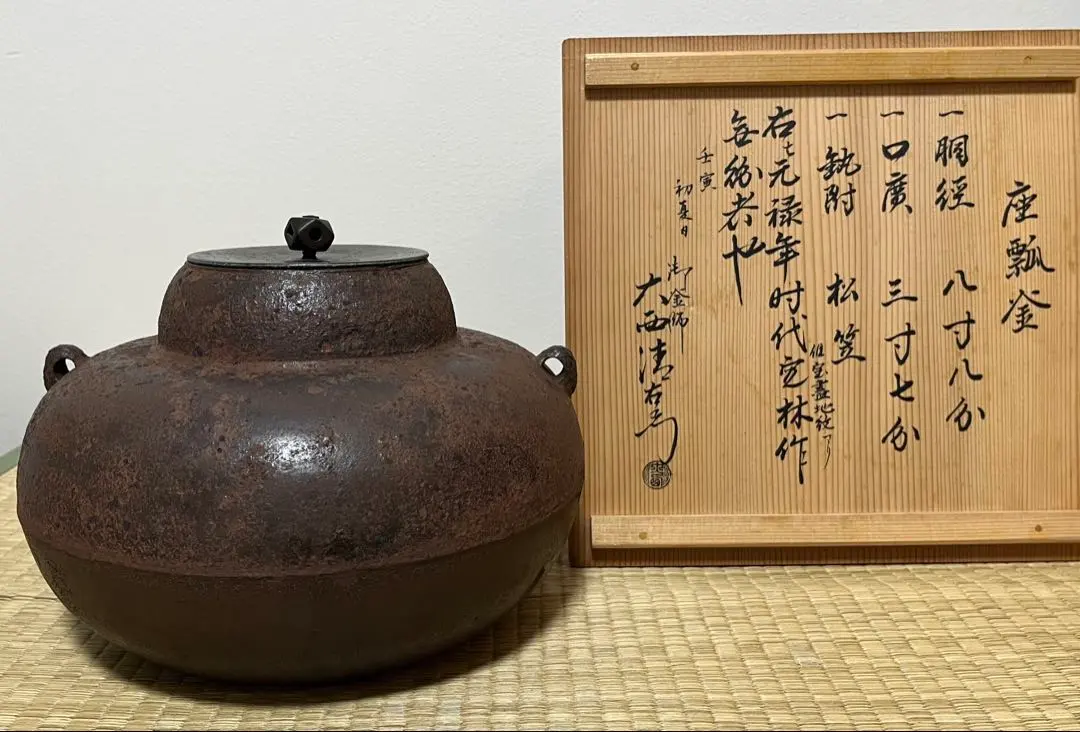 座瓢釜
一 胴径 八寸八分
一 口廣 三寸七分
一 釻附 松笠
但空盡地紋アリ
右七元禄年时代定林作
無紛者也
壬寅
初夏日
御釜師
大西清右衛門